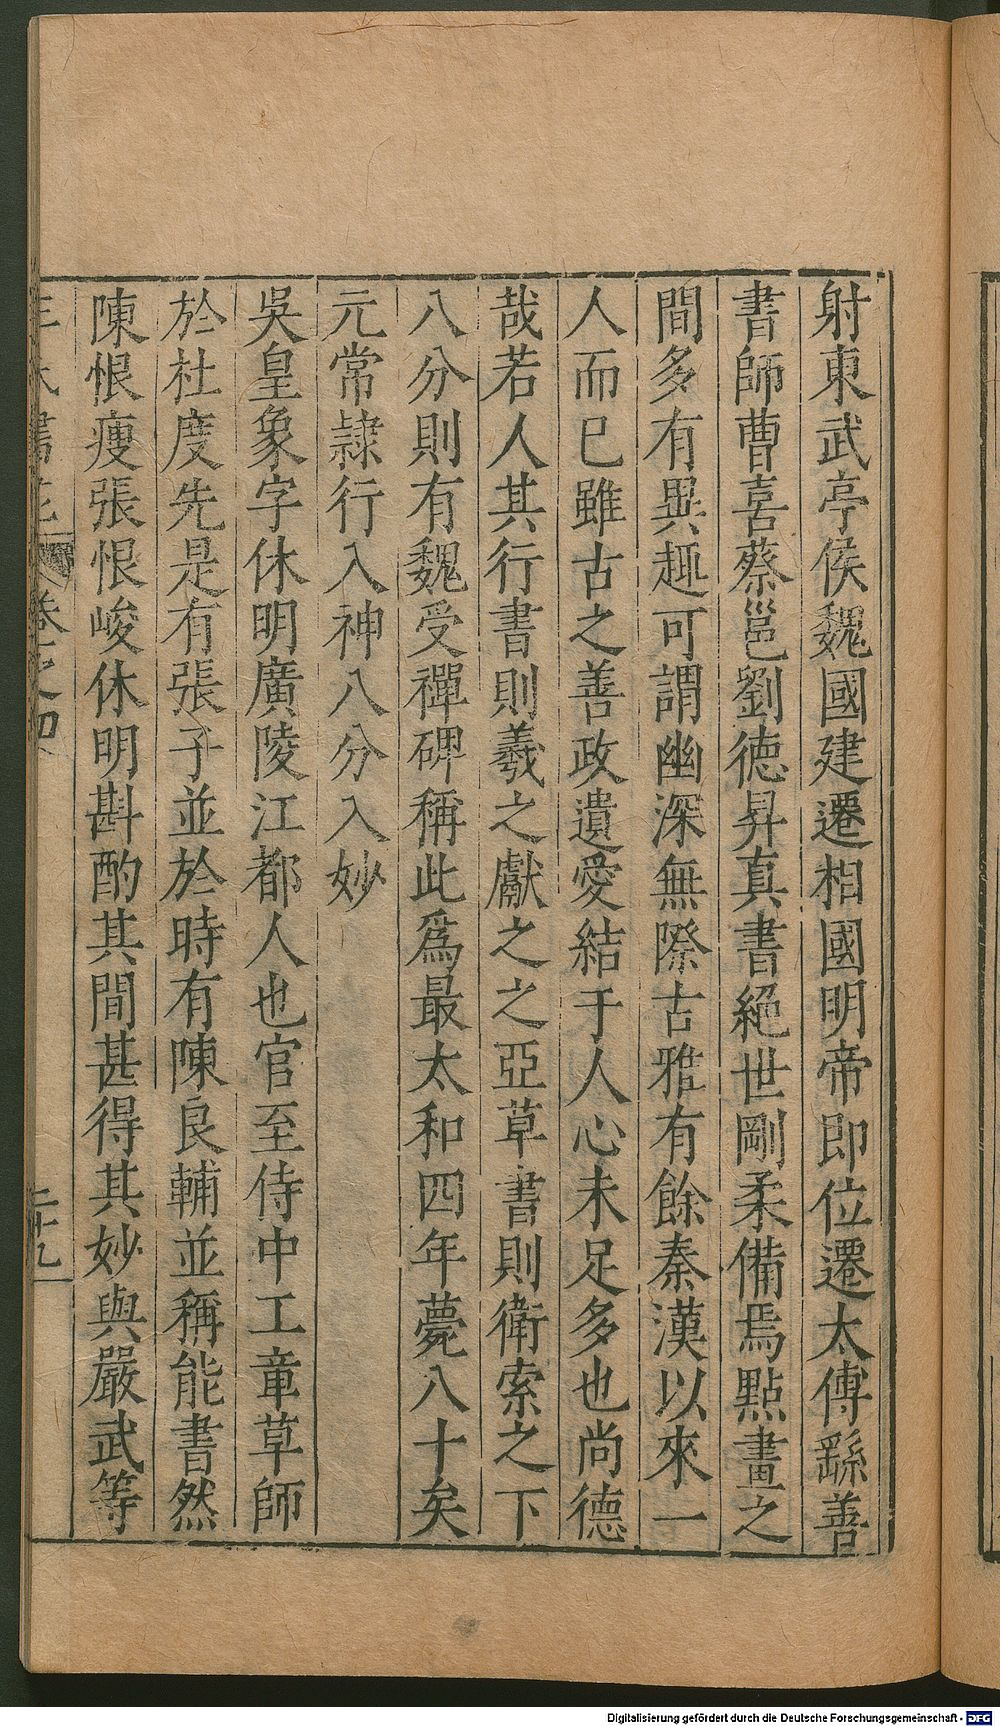 射東武亭侯魏國建遷相國明帝即位遷太傅繇善
書師曹喜蔡邕劉德昇真書絕世剛柔備焉點畫之
間多有異趣可謂幽深無際古雅有餘秦漢以來一
人而已雖古之善政遺愛結于人心未足多也尚德
哉若人其行書則羲之獻之之亞草書則衛索之下
八分則有魏受禪碑稱此為最太和四年薨八十矣
元常隸行入神八分入妙
吳皇象字休明廣陵江都人也官至侍中工章草師
於杜度先是有張子並於時有陳良輔並稱能書然
陳恨瘦張恨峻休明斟酌其間甚得其妙與嚴武等
卷之四
二十九
Digitalisierung gefördert durch die Deutsche Forschungsgemeinschaft - DFG